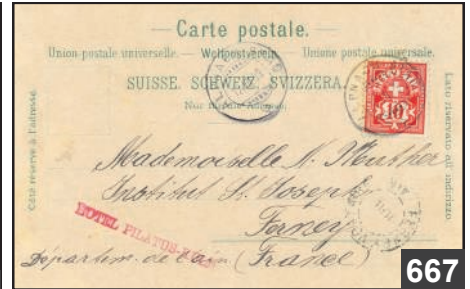 Carte postale.
Union postale universelle. — Weltpostverein. — Unione postale universale.
SUISSE. SCHWEIZ. SVIZZERA.
Nur für die Adresse.
Côté réservé à l'adresse.
Lato riservato all' indirizzo.
HELVETIA
10
Mademoiselle N.
Institut St. Joseph
Ferney
HOTEL PILATUS-KULM
Départem. de l'ain (France)
667